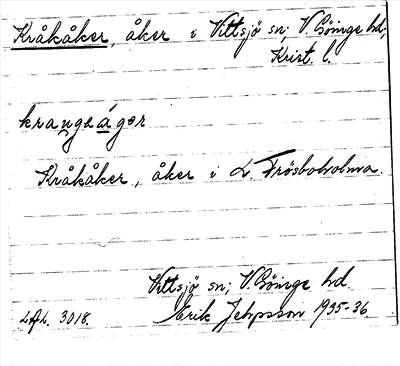 Kråkåker, åker i Vittsjö sn; V. Göinge hd,
Krist. l.
kraugeágər
Kråkåker, åker i L. Frösboholma.
Vittsjö sn; V. Göinge hd.
LAL. 3018. Erik Jeppsson 1935-36